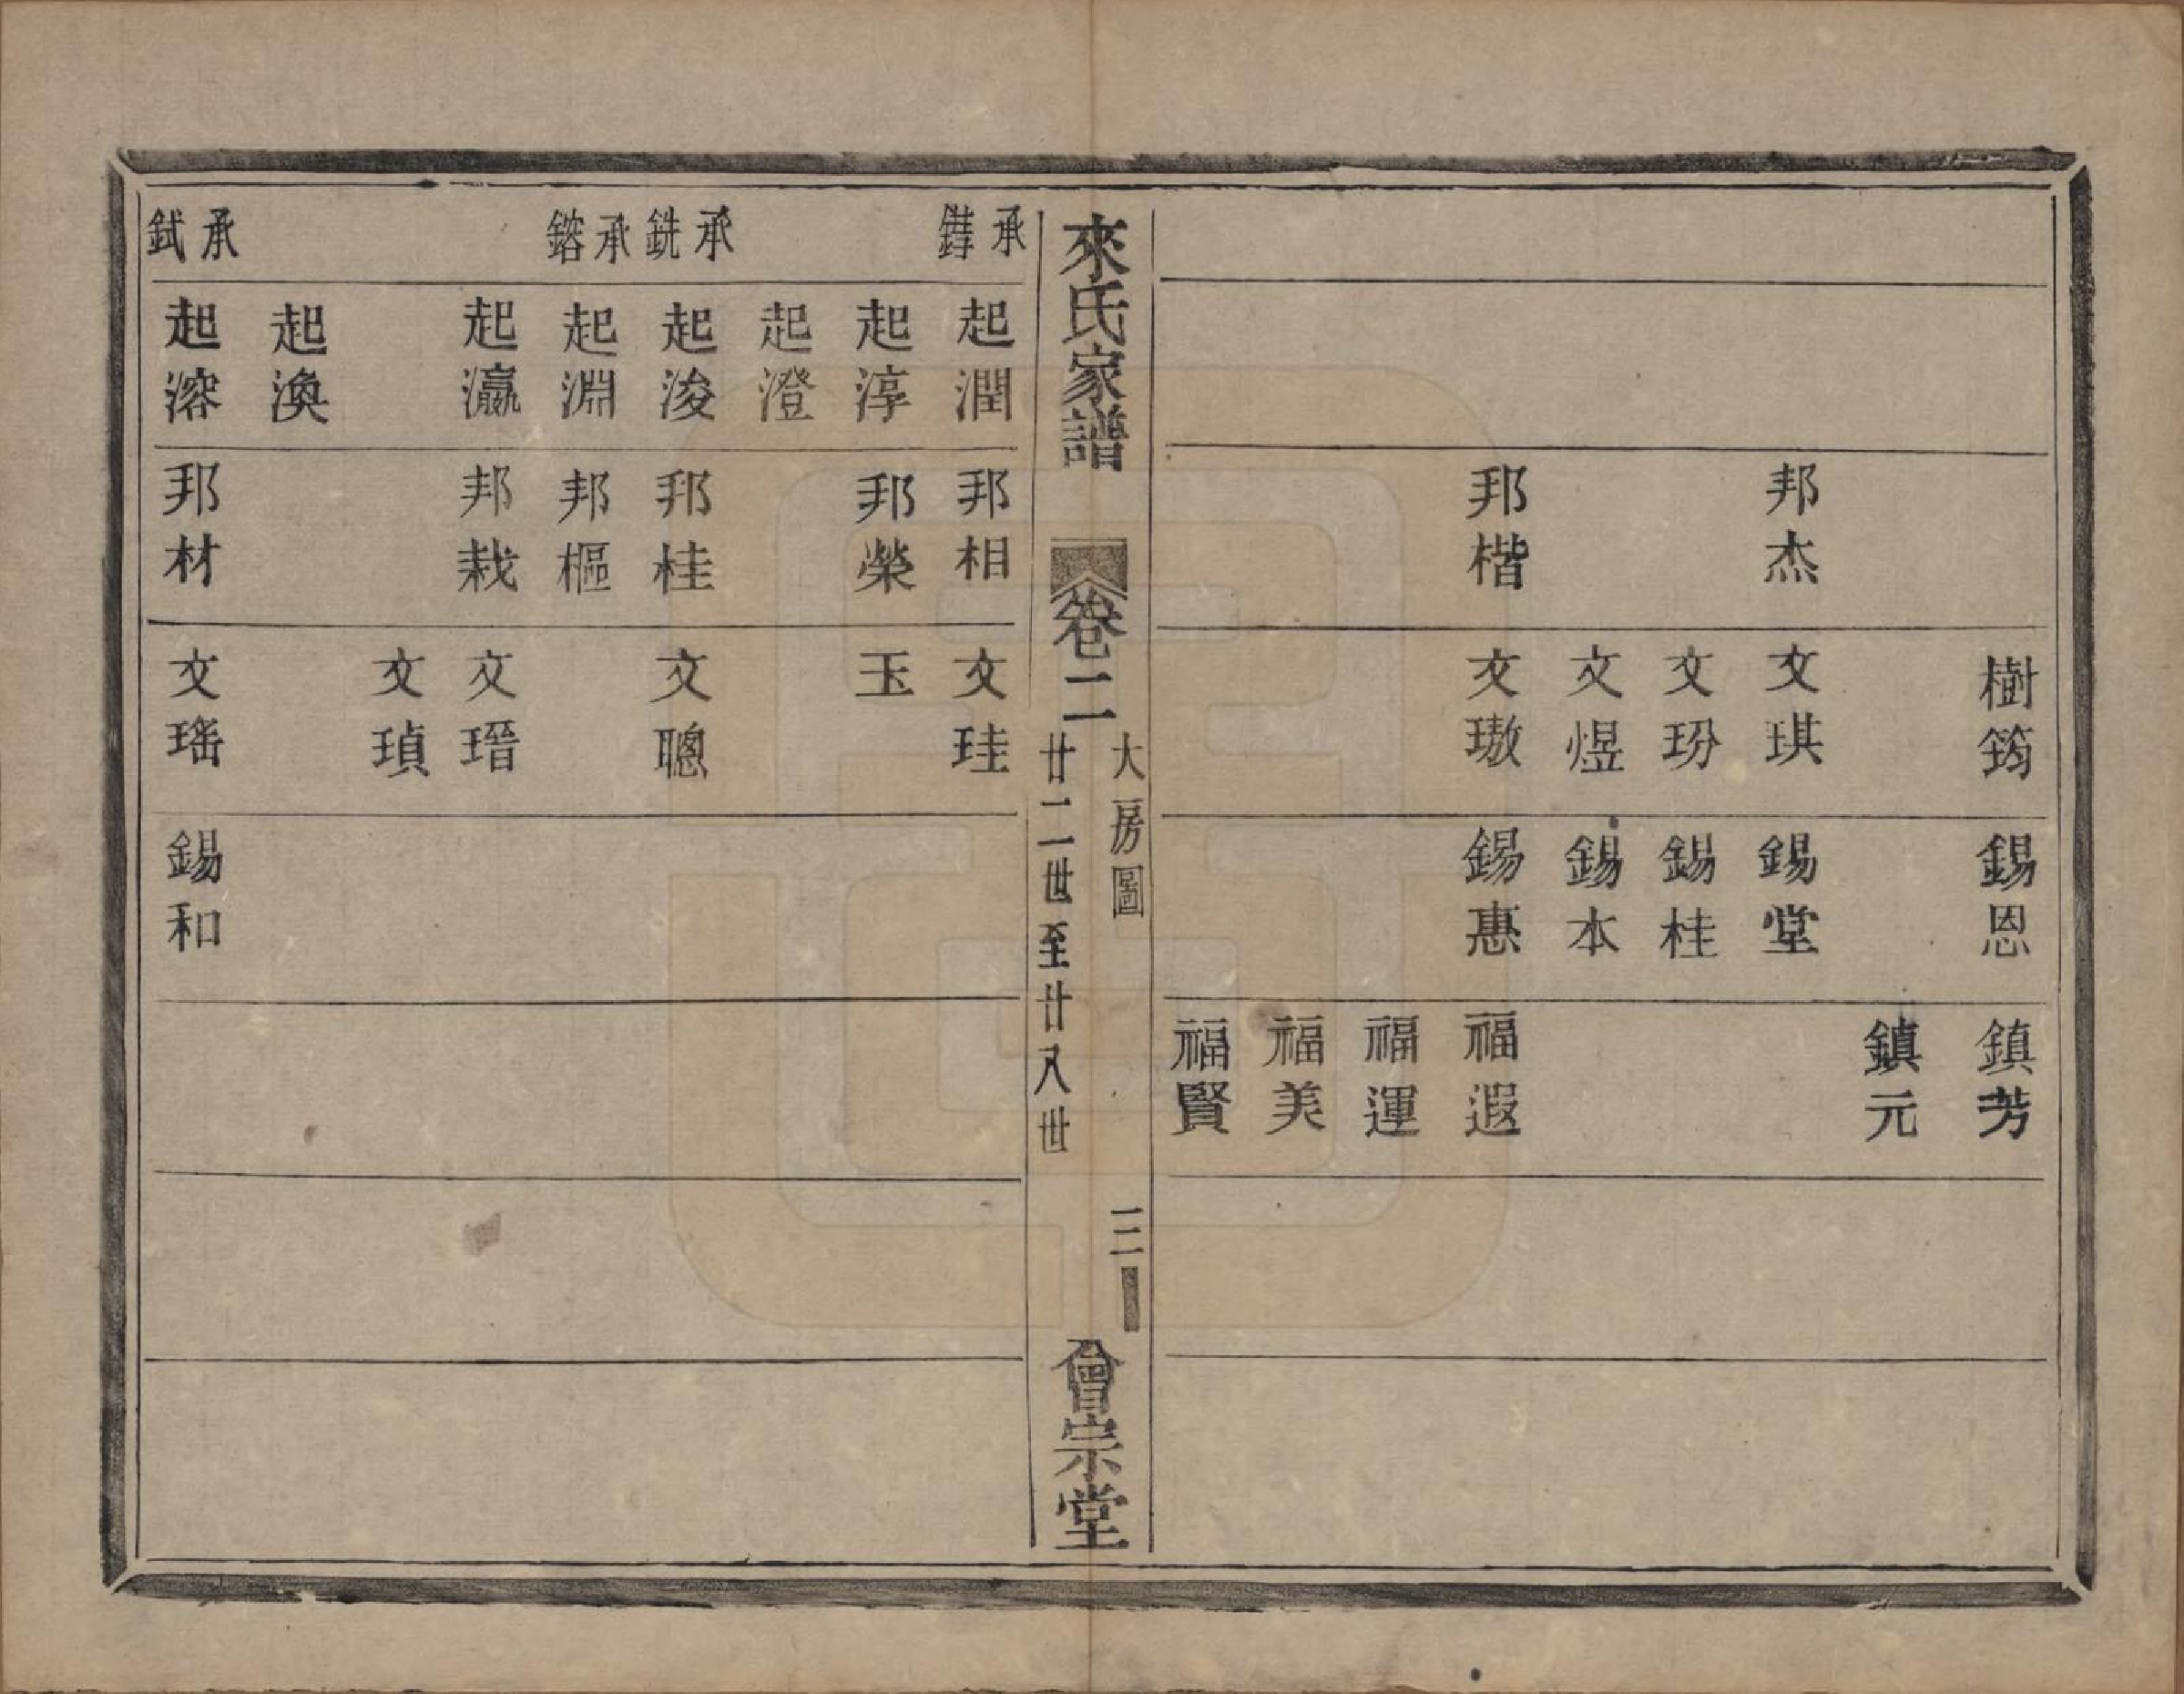 樹筠
錫恩
鎮芳
鎮元
邦杰
文琪
錫堂
文玢
錫桂
文煜
錫本
邦楷
文璈
錫惠
福遐
福運
福美
福賢
來氏家譜
卷二
大房圖
廿二世至廿八世
三
會宗堂
承
起潤
邦相
文珪
起淳
邦榮
玉
起澄
承銑
起浚
邦桂
文聰
承鎔
起淵
邦樞
起瀛
邦栽
文瑨
文瑱
起渙
承鉽
起溶
邦材
文瑤
錫和